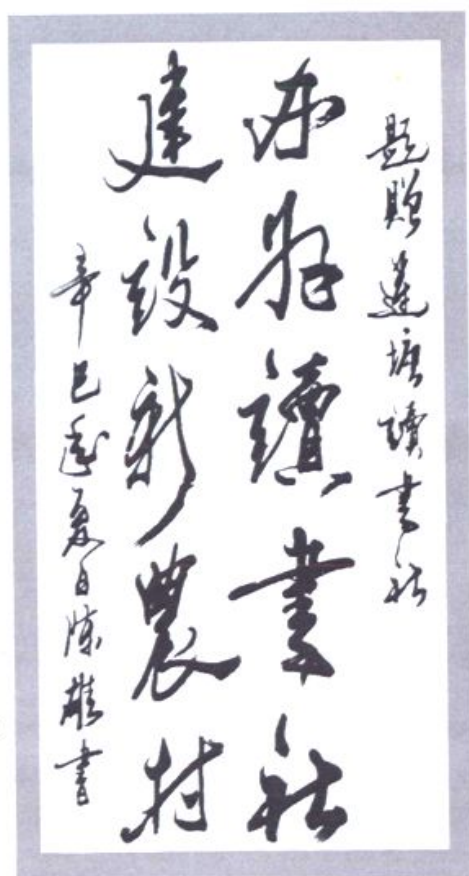 題贈蓮塘讀書社
辦好讀書社
建設新農村
辛巳年夏日陳雄書